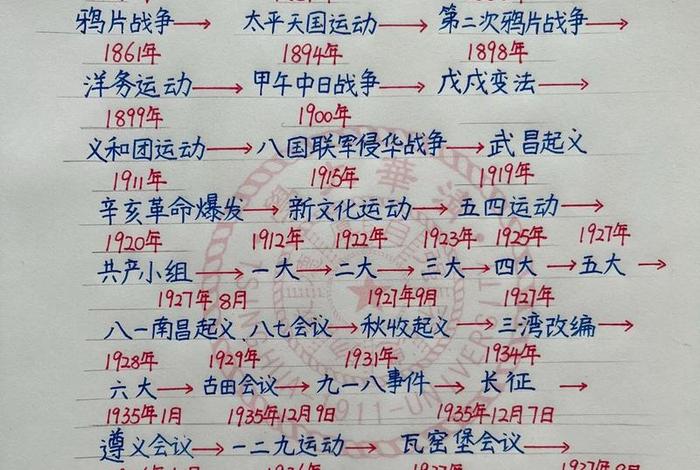 鸦片战争→ 太平天国运动→ 第二次鸦片战争→
1861年 1894年 1898年
洋务运动→ 甲午中日战争→ 戊戌变法→
1899年 1900年
义和团运动→ 八国联军侵华战争→ 武昌起义
1911年 1915年 1919年
辛亥革命爆发→ 新文化运动→ 五四运动→
1920年 1912年 1922年 1923年 1925年 1927年
共产小组→ 一大→ 二大→ 三大→ 四大→ 五大→
1927年8月 1927年9月 1927年
八一南昌起义、八七会议→ 秋收起义→ 三湾改编→
1928年 1929年 1931年 1934年
六大→ 古田会议→ 九一八事件→ 长征→
1935年1月 1935年12月9日 1935年12月7日
遵义会议→ 一二九运动→ 瓦窑堡会议→